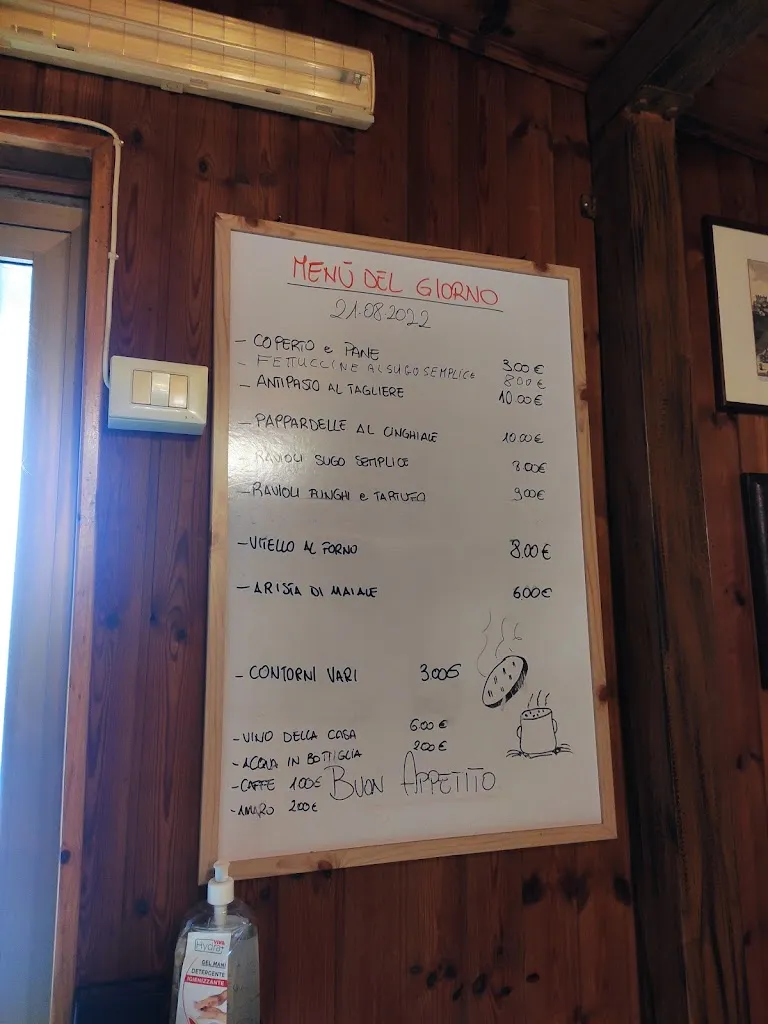 MENÙ DEL GIORNO
21.08.2022
- COPERTO e PANE 3.00€
- FETTUCCINE AL SUGO SEMPLICE 8.00€
- ANTIPASTO AL TAGLIERE 10.00€
- PAPPARDELLE AL CINGHIALE 10.00€
- RAVIOLI SUGO SEMPLICE 8.00€
- RAVIOLI FUNGHI e TARTUFO 9.00€
- VITELLO AL FORNO 8.00€
- ARISTA DI MAIALE 6.00€
- CONTORNI VARI 3.00€
- VINO DELLA CASA 6.00€
- ACQUA IN BOTTIGLIA 2.00€
- CAFFE 1.00€
- AMARO 2.00€
BUON APPETITO
VIVA
Hydra
GEL MANI
DETERGENTE
IGIENIZZANTE